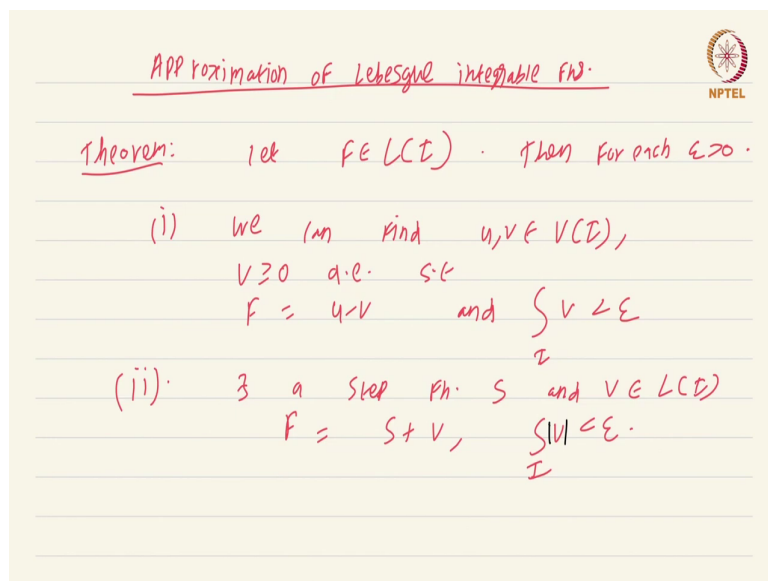 Approximation of Lebesgue integrable fns.
NPTEL
Theorem: let f ∈ L(I). Then for each ε>0.
(i) we can find u,v ∈ V(I),
v≥0 a.e. s.t
f = u-v and ∫_I v < ε
(ii). ∃ a step fn. s and v ∈ L(I)
f = s+v, ∫_I |v| < ε.